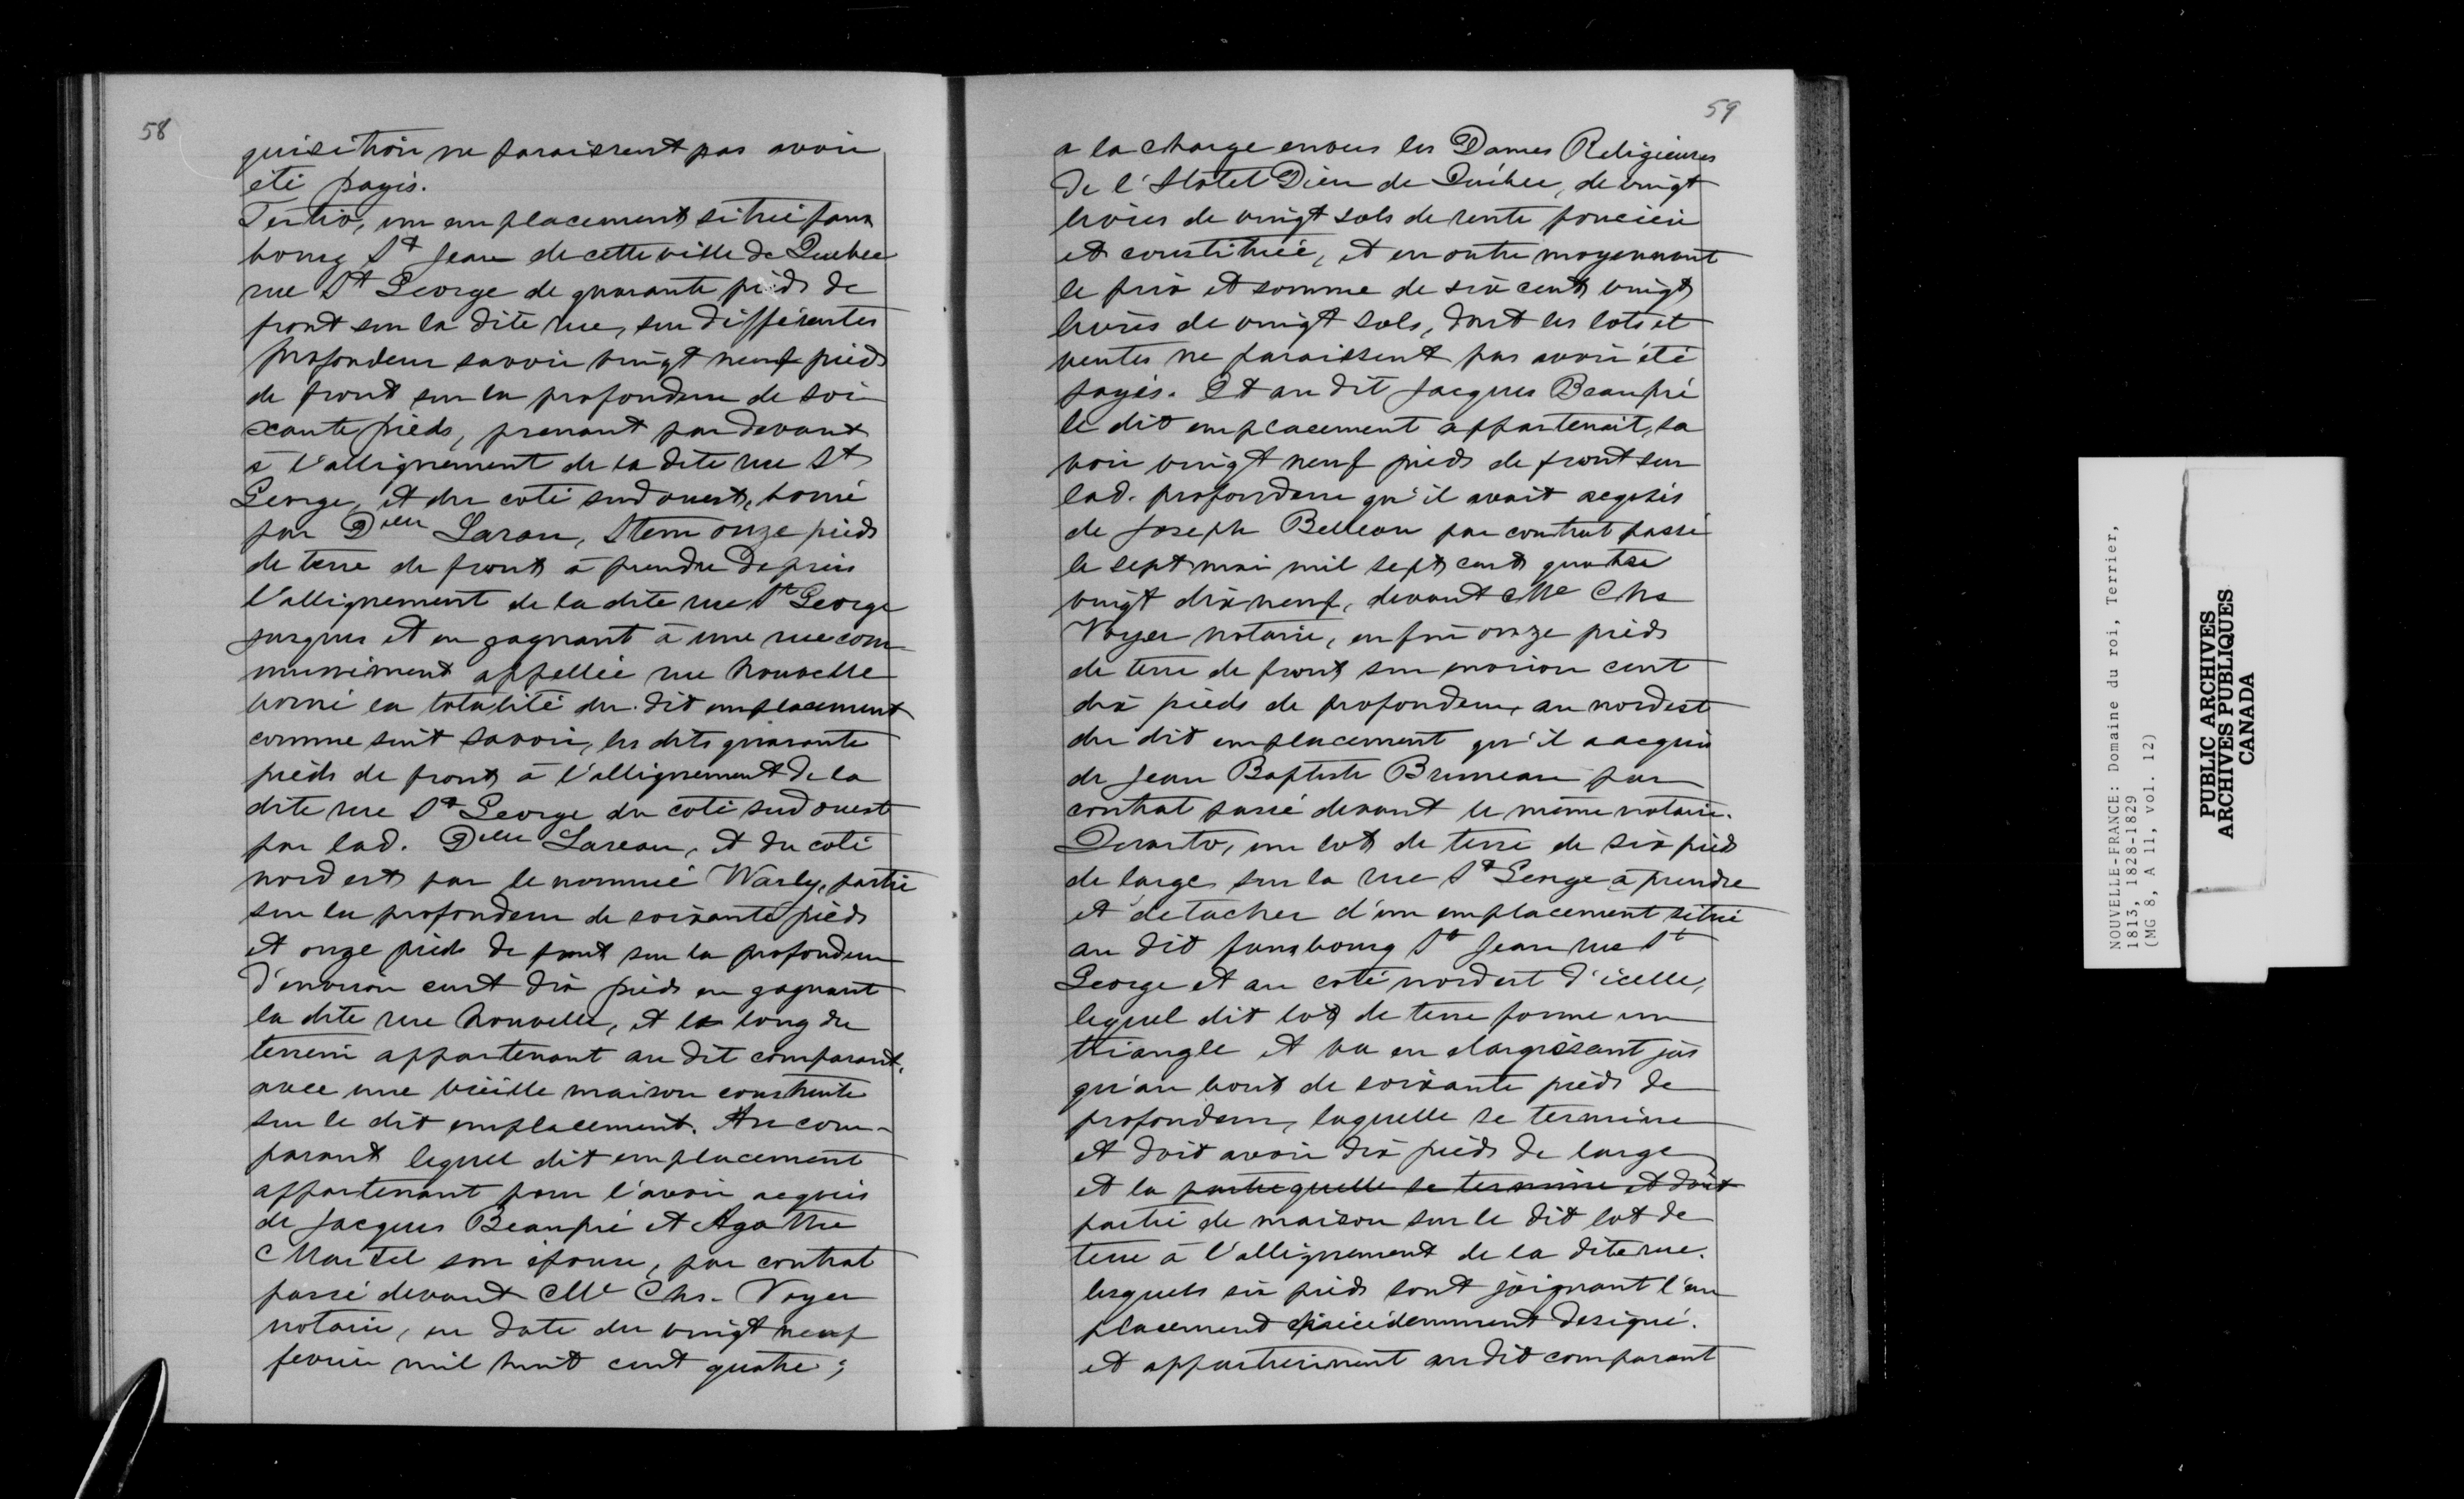 58
quisition ne paraissent pas avoir
été payés.
Tertio, un emplacement situé faux
bourg St Jean de cette ville de Quebec
rue St George de quarante pieds de
front sur la dite rue, sur différentes
profondeur savoir vingt neuf pieds
de front sur la profondeur de soi
xante pieds, prenant par devant
à l'allignement de la dite rue St
George, et du coté sud ouest, borné
par Delle Larau, Item onze pieds
de terre de front à prendre depuis
l'allignement de la dite rue St George
jusques et en gagnant à une rue com-
munément appellée rue Nouvelle
borné la totalité du dit emplacement
comme suit savoir, les dits quarante
pieds de front à l'allignement de la
dite rue St George du coté sud ouest
par lad. Delle Lareau, et du coté
nord est par le nommé Warly, partie
sur la profondeur de soixante pieds
et onze pieds de front sur la profondeur
d'environ cent dix pieds en gagnant
la dite rue Nouvelle, et le long du
terrein appartenant au dit comparant,
avec une vieille maison construite
sur le dit emplacement. Au com-
parant lequel dit emplacement
appartenant pour l'avoir acquis
de Jacques Beaupré et Agathe
Martel son épouse, par contrat
passé devant Me Chs. Voyer
notaire, en date du vingt neuf
fevrier mil huit cent quatre;
59
a la charge envers les Dames Religieuses
de l'Hotel Dieu de Québec, de vingt
livres de vingt sols de rente foncière
et constituée, et en outre moyennant
le prix et somme de six cent vingt
livres de vingt sols, dont les lots et
ventes ne paraissent pas avoir été
payés. Et au dit Jacques Beaupré
le dit emplacement appartenait, sa
voir vingt neuf pieds de front sur
lad. profondeur qu'il avait acquis
de Joseph Belleau par contrat passé
le sept mai mil sept cent quatre
vingt dix neuf, devant Me Chs
Voyer notaire, enfin onze pieds
de terre de front sur environ cent
dix pieds de profondeur au nord est
du dit emplacement qu'il a acquis
de Jean Baptiste Bruneau par
contrat passé devant le même notaire.
Quarto, un lot de terre de six pieds
de large sur la rue St George à prendre
et detacher d'un emplacement situé
au dit fauxbourg St Jean rue St
George et au coté nord est d'icelle,
lequel dit lot de terre forme un
triangle et va en elargissant jus
qu'au bout de soixante pieds de
profondeur, laquelle se termine
et doit avoir dix pieds de large
et la partie quelle se termine et doit
partie de maison sur le dit lot de
terre à l'allignement de la dite rue.
lesquels six pieds sont joignant l'em
placement précédemment designé.
et appartiennent au dit comparant
NOUVELLE-FRANCE: Domaine du roi, Terrier,
1813, 1828-1829
(MG 8, A 11, vol. 12)
PUBLIC ARCHIVES
ARCHIVES PUBLIQUES
CANADA